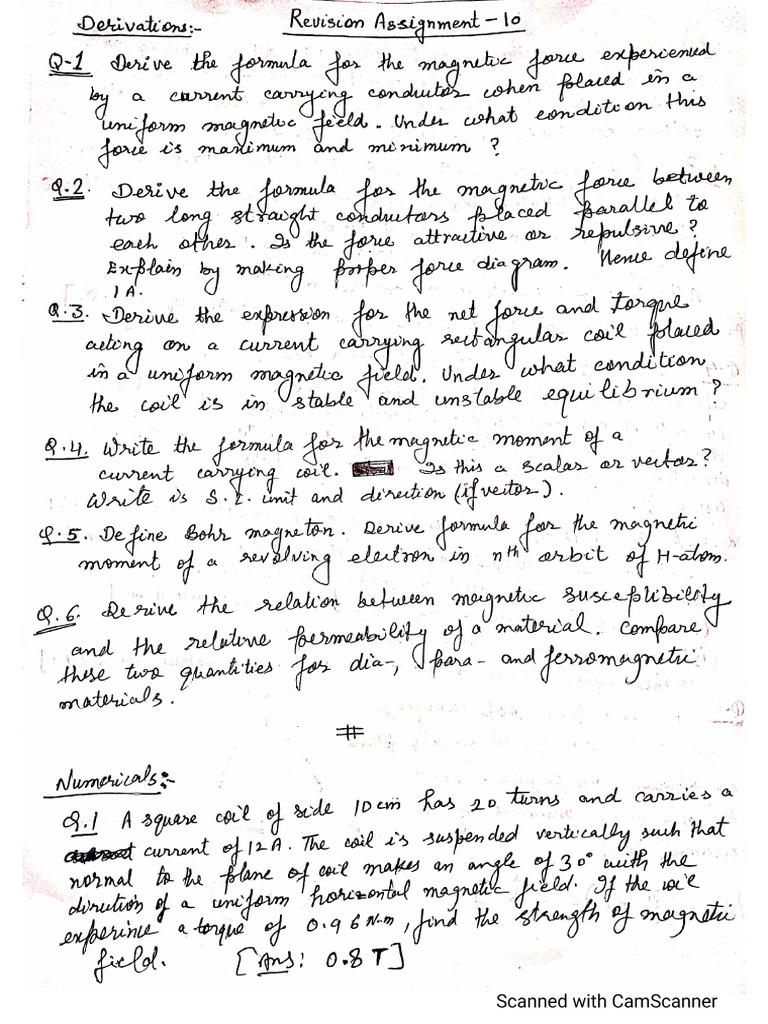 Derivations:- Revision Assignment-10
Q-1 Derive the formula for the magnetic force experienced
by a current carrying conductor when placed in a
uniform magnetic field. Under what condition this
force is maximum and minimum ?
Q.2. Derive the formula for the magnetic force between
two long straight conductors placed parallel to
each other. Is the force attractive or repulsive?
Explain by making proper force diagram. Hence define
1 A.
Q.3. Derive the expression for the net force and torque
acting on a current carrying rectangular coil placed
in a uniform magnetic field. Under what condition
the coil is in stable and unstable equilibrium ?
Q.4. Write the formula for the magnetic moment of a
current carrying coil. Is this a scalar or vector?
Write is S.I. unit and direction (if vector).
Q.5. Define Bohr magneton. Derive formula for the magnetic
moment of a revolving electron in nth orbit of H-atom.
Q.6. Derive the relation between magnetic susceptibility
and the relative permeability of a material. Compare
these two quantities for dia-, para- and ferromagnetic
materials.
#
Numericals:-
Q.1 A square coil of side 10cm has 20 turns and carries a
current of 12A. The coil is suspended vertically such that
normal to the plane of coil makes an angle of 30° with the
direction of a uniform horizontal magnetic field. If the coil
experince a torque of 0.96 N-m, find the strength of magnetic
field. [Ans: 0.8 T]
Scanned with CamScanner